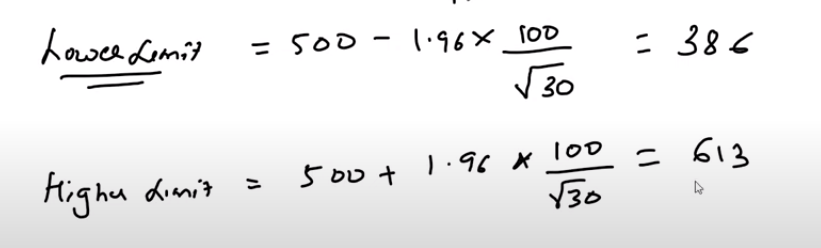 Lower Limit = 500 - 1.96 × 100/√30 = 386
Higher Limit = 500 + 1.96 × 100/√30 = 613